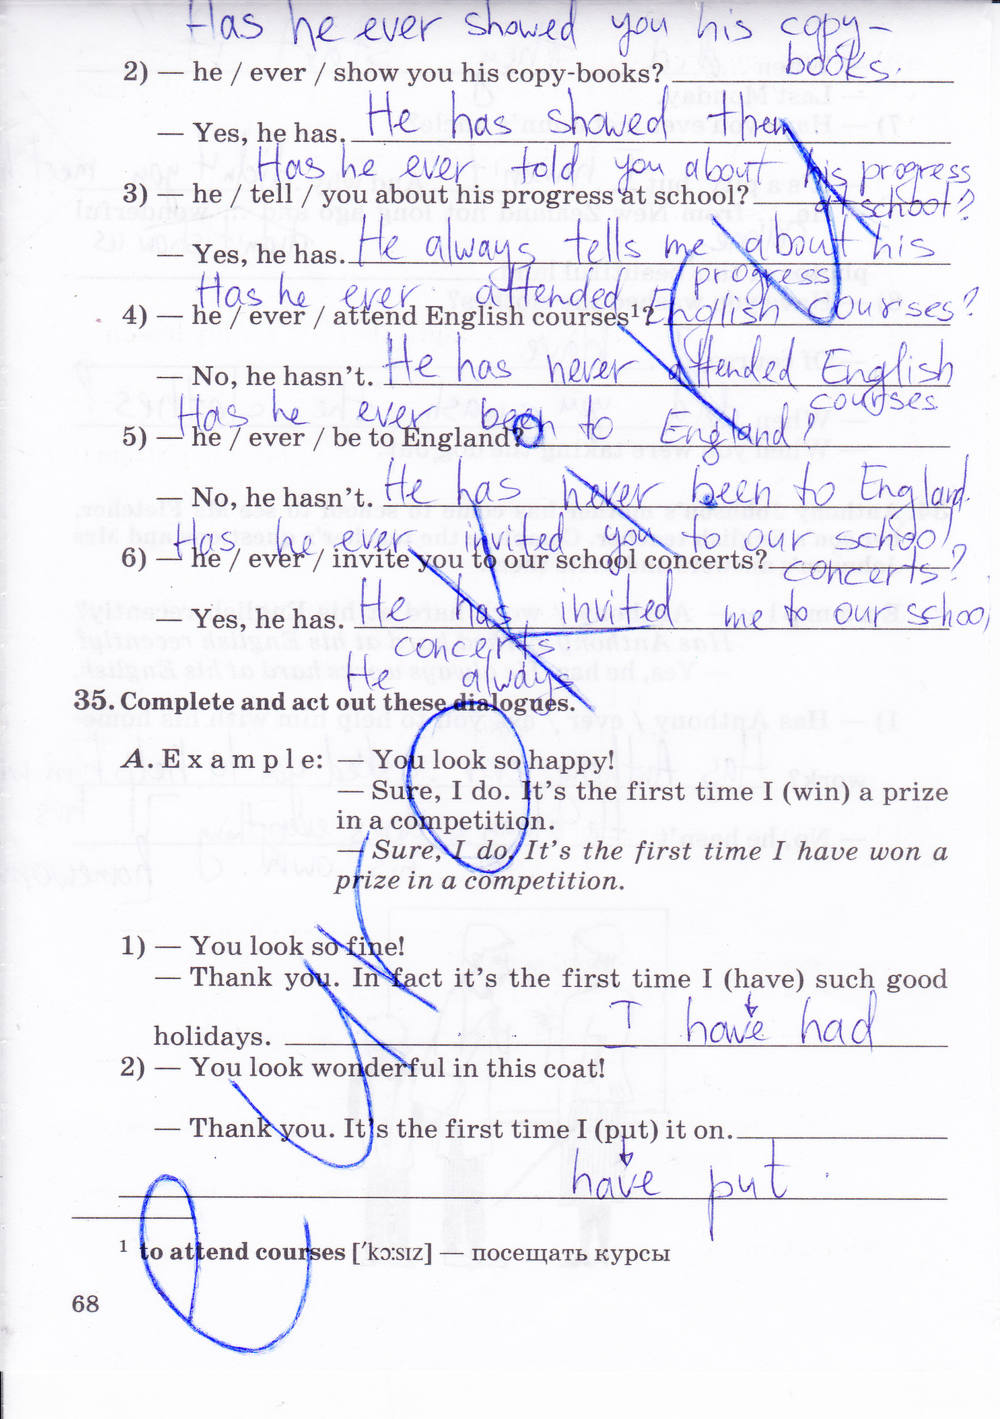 Has he ever showed you his copy-
books.
2) — he / ever / show you his copy-books?
— Yes, he has. He has showed them
Has he ever told you about his progress
3) — he / tell / you about his progress at school? at school?
— Yes, he has. He always tells me about his
progress
Has he ever attended English courses?
4) — he / ever / attend English courses¹?
— No, he hasn't. He has never attended English
courses
Has he ever been to England?
5) — he / ever / be to England?
— No, he hasn't. He has never been to England.
Has he ever invited you to our school
6) — he / ever / invite you to our school concerts? concerts?
— Yes, he has. He has invited me to our school
concerts.
He always
35. Complete and act out these dialogues.
A. Example: — You look so happy!
— Sure, I do. It's the first time I (win) a prize
in a competition.
— Sure, I do. It's the first time I have won a
prize in a competition.
1) — You look so fine!
— Thank you. In fact it's the first time I (have) such good
holidays. I have had
2) — You look wonderful in this coat!
— Thank you. It's the first time I (put) it on.
have put
¹ to attend courses ['kɔ:sɪz] — посещать курсы
68